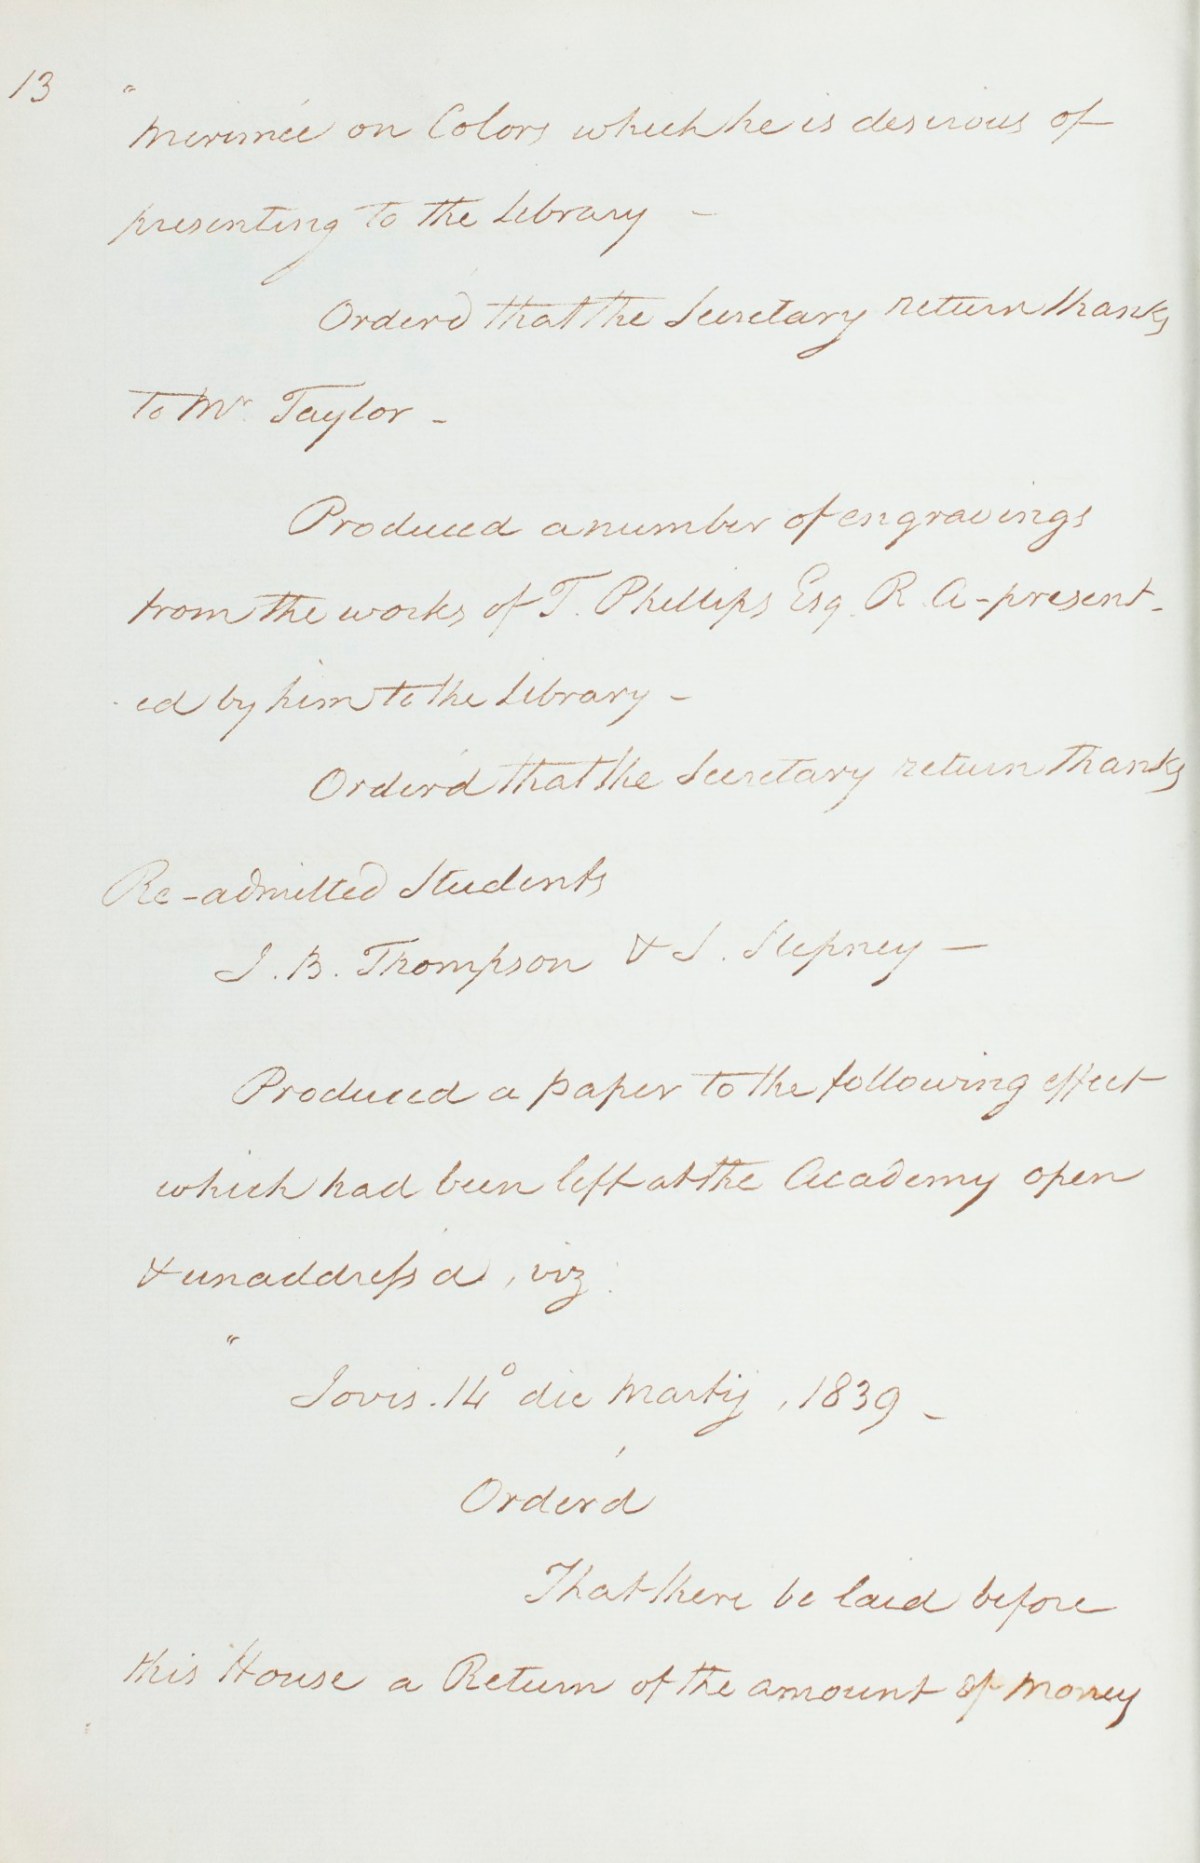 13
"
Merimée on Colors which he is desirous of
presenting to the Library –
Order'd that the Secretary return thanks
to Mr. Taylor –
Produced a number of engravings
from the works of T. Phillips Esq. R. A – present-
ed by him to the Library –
Order'd that the Secretary return thanks
Re-admitted Students
J. B. Thompson & J. Stepney –
Produced a paper to the following effect
which had been left at the Academy open
& unaddreſs'd, viz:
"
Jovis. 14° die Martij, 1839 –
Order'd
That there be laid before
this House a Return of the amount of Money